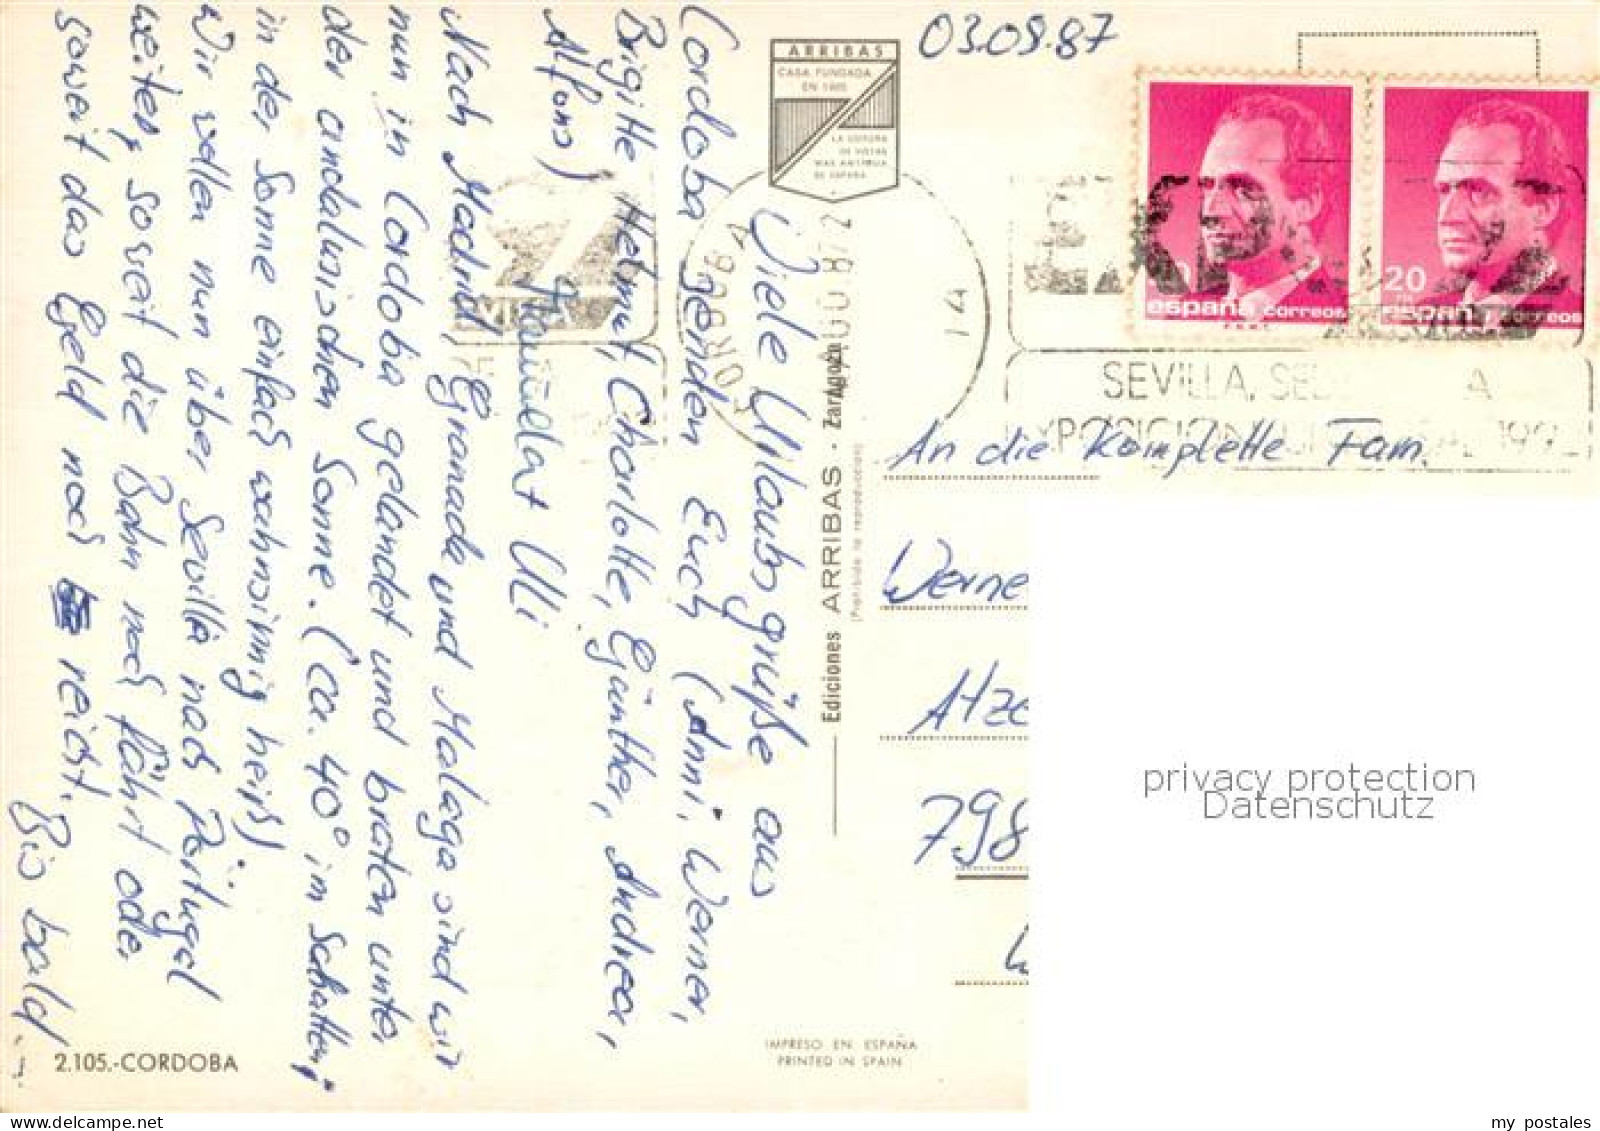 03.09.87
ARRIBAS
CASA FUNDADA
EN 1905
LA EDITORA
DE VISTAS
MAS ANTIGUA
DE ESPAÑA
españa correos
20
españa correos
EXPO
SEVILLA, SE A
EXPOSICION 199
Viele Urlaubsgrüße aus
Cordoba senden Euch (Anni, Werner,
Brigitte Helmut, Charlotte, Günther, Andrea,
Alfons)
Uli
Nach Madrid, Granada und Malaga sind wir
nun in Cordoba gelandet und braten unter
der andalusischen Sonne. (ca. 40° im Schatten,
in der Sonne einfach wahnsinnig heiß)
Wir wollen nun über Sevilla nach Portugal
weiter, soweit die Bahn noch fährt oder
soweit das Geld noch reicht.
Bis bald...
Ediciones ARRIBAS - Zaragoza
(Prohibida la reproducción)
An die komplette Fam.
Werne
Atze
798
privacy protection
Datenschutz
IMPRESO EN ESPAÑA
PRINTED IN SPAIN
2.105.-CORDOBA
my postales